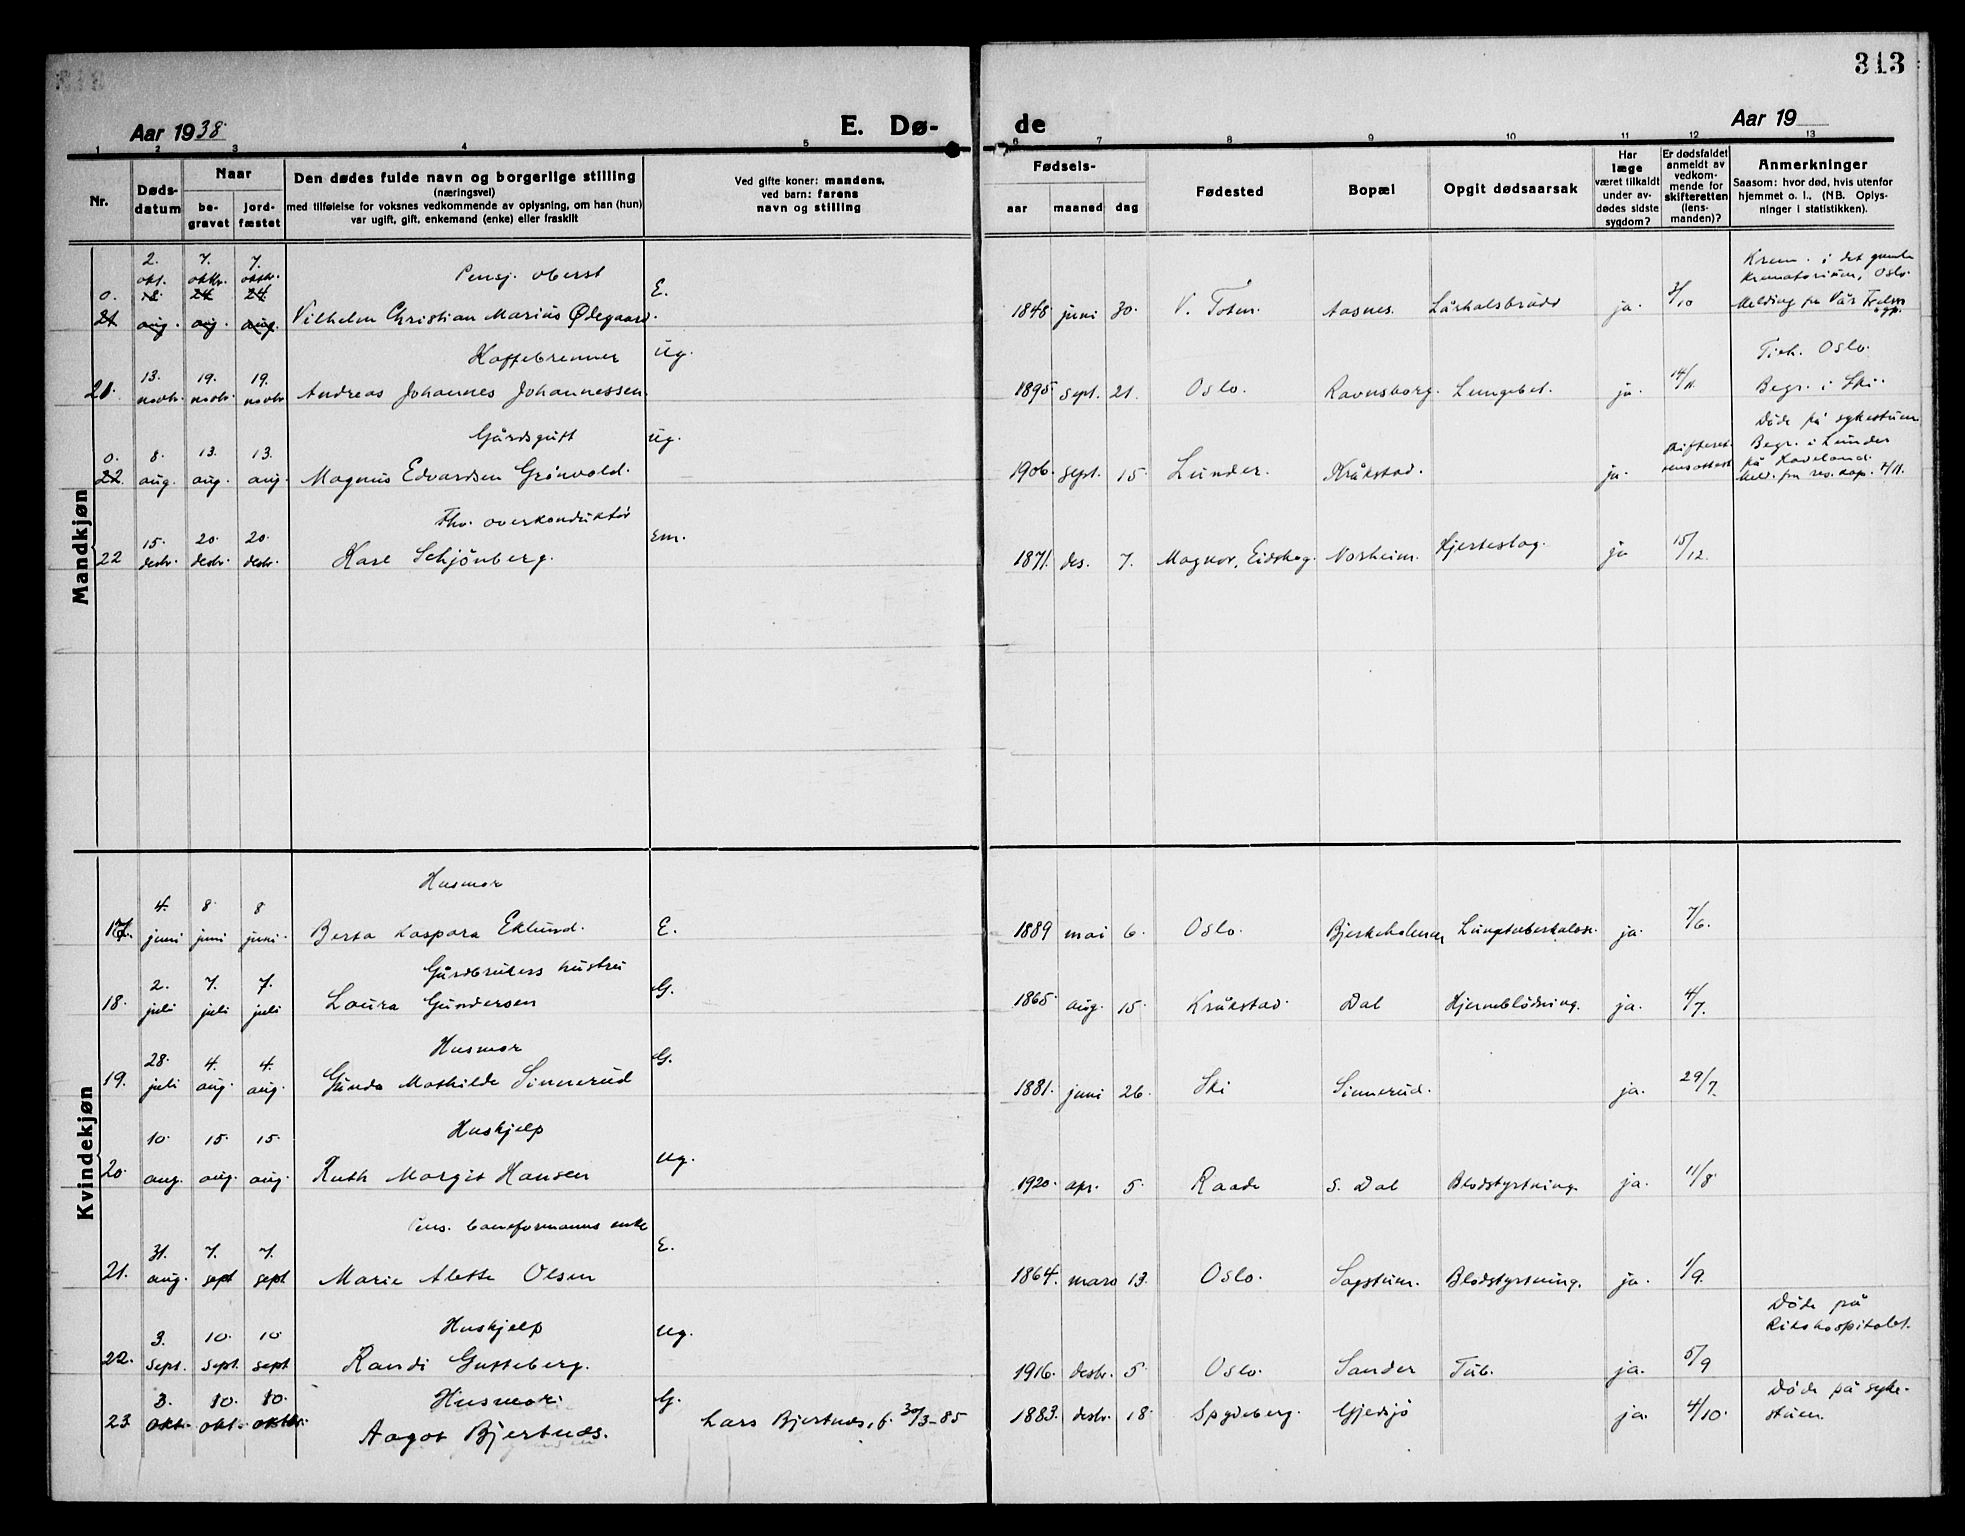 313
Aar 1938
E. Dø-
de
Aar 19
1 2 3 4 5 6 7 8 9 10 11 12 13
Nr.
Døds-
datum
Naar
be-
gravet
jord-
fæstet
Den dødes fulde navn og borgerlige stilling
(næringsvei)
med tilføielse for voksnes vedkommende av oplysning, om han (hun)
var ugift, gift, enkemand (enke) eller fraskilt
Ved gifte koner: mandens,
ved barn: farens
navn og stilling
Fødsels-
aar maaned dag
Fødested
Bopæl
Opgit dødsaarsak
Har
læge
været tilkaldt
under av-
dødes sidste
sygdom?
Er dødsfaldet
anmeldt av
vedkom-
mende for
skifteretten
(lens-
manden)?
Anmerkninger
Saasom: hvor død, hvis utenfor
hjemmet o. l., (NB. Oplys-
ninger i statistikken).
Mandkjøn
2. 7. 7. Pensj. oberst E. Krem. i det gamle
okt. oktbr. oktbr. Krematorium, Oslo.
0. 24 24
21 aug. aug. aug. Vilhelm Christian Marius Ødegaard. 1848 juni 30. V. Toten. Aasnes. Lårhalsbrudd ja. 3/10 Melding fra Vår Frelsers
Kaffebrenner Ug. Tiek. Oslo.
13. 19. 19.
21. novbr. novbr. novbr. Andreas Johannes Johannessen. 1895 sept. 21. Oslo. Ravnsborg. Lungebet. ja. 14/11 Begr. i Ski.
Gårdsgutt Ug. Døde på sykestuen
0. 8. 13. 13. Begr. i Lunder
22. aug. aug. aug. Magnus Edvardsen Grönvold. 1906. sept. 15. Lunder. Kråkstad. ja. skifteret-
tens attest på Haveland.
Meld. fra res. kap. 4/11.
Fhv. overkonduktör Em.
15. 20. 20.
22 desbr. desbr. desbr. Karl Schjönberg. 1871. des. 7. Magnor, Eidskog. Norheim. Hjerteslag. ja 15/12.
Kvindekjøn
Husmor
4. 8 8
17. juni juni juni. Berta Kaspara Eklund. E. 1889 mai 6. Oslo. Bjerkeholmen Lungetuberkulose. ja. 7/6.
Gårdbrukers hustru
2. 7. 7.
18. juli juli juli Laura Gundersen G. 1865. aug. 15. Kråkstad. Dal Hjerneblödning. ja. 4/7.
Husmor
28. 4. 4.
19. juli aug. aug. Gunda Mathilde Sinnerud G. 1881. juni 26. Ski Sinnerud. ja. 29/7.
Huskjelp
10. 15. 15.
20. aug. aug. aug. Ruth Margit Hansen Ug. 1920. apr. 5. Raade S. Dal Blodstyrtning. ja. 11/8
Pens. baneformanns enke
31. 7. 7.
21. aug. sept sept Marie Alette Olsen E. 1864. mars 13. Oslo. Sagstuen. Blodstyrtning. ja. 1/9.
Huskjelp Døde på
Rikshospitalet.
3. 10. 10.
22. sept. sept. sept Randi Gutteberg. Ug. 1916. desbr. 5. Oslo. Sander Tub. ja. 5/9
3. 10. 10. Husmor. G. Døde på syke-
23. okt. okt. oktbr. Aagot Bjertnæs. Lars Bjertnæs, f. 30/3-85 1883. desbr. 18. Spydeberg. Gjedsjö ja. 4/10. stuen.